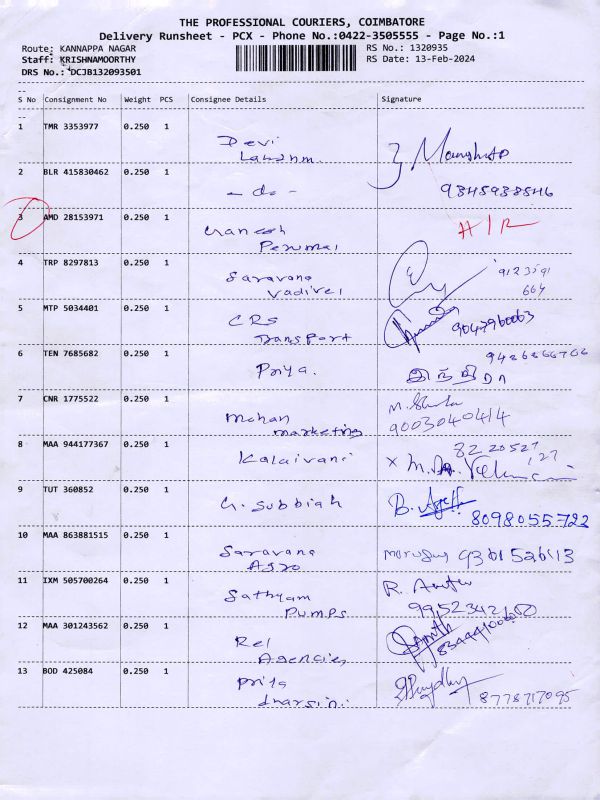 THE PROFESSIONAL COURIERS, COIMBATORE
Delivery Runsheet - PCX - Phone No.:0422-3505555 - Page No.:1
Route: KANNAPPA NAGAR RS No.: 1320935
Staff: KRISHNAMOORTHY RS Date: 13-Feb-2024
DRS No.: DCJB132093501
S No Consignment No Weight PCS Consignee Details Signature
1 TMR 3353977 0.250 1 Devi
Lakshm.
2 BLR 415830462 0.250 1 - do - 9345938546
3 AMD 28153971 0.250 1 Ganesh H/R
Perumal
4 TRP 8297813 0.250 1 Saravana 9123591
Vadivel 664
5 MTP 5034401 0.250 1 CRS 9047960063
Transport
6 TEN 7685682 0.250 1 Priya.
7 CNR 1775522 0.250 1 Mohan
marketing 9003040414
8 MAA 944177367 0.250 1 Kalaivani 82 20527
127
9 TUT 360852 0.250 1 G. Subbiah 8098055722
10 MAA 863881515 0.250 1 Saravana
Agro
11 IXM 505700264 0.250 1 Sathyam
Pumps
12 MAA 301243562 0.250 1 Rel
Agencies
13 BOD 425084 0.250 1 Priya
dharsini 8778717095